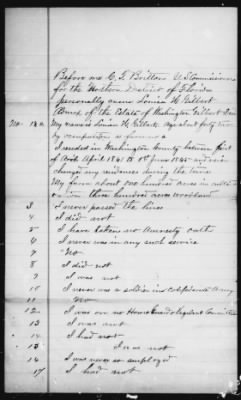 Before me C. F. Britton U S Commissioner
for the Northern District of Florida
personally came Louisa H Gilbert
Admx of the Estate of Washington Gilbert Dec
My name is Louisa H Gilbert age about forty two
by occupation a farmer
I resided in Washington County between first
of April 1861 to 1st June 1865 did not
change my residence during the time
My farm about one hundred acres in cultivation
three hundred acres woodland
3 I never passed the lines
4 I did not
5 I have taken no amnesty oath
6 I never was in any such service
7 No
8 I did not
9 I was not
10 I never was a soldier in Confederate Army
11 No
12 I was on no Home Guard vigilant Committee
13 I was not
14 I had not
15 I was not
16 I was never so employed
17 I had not